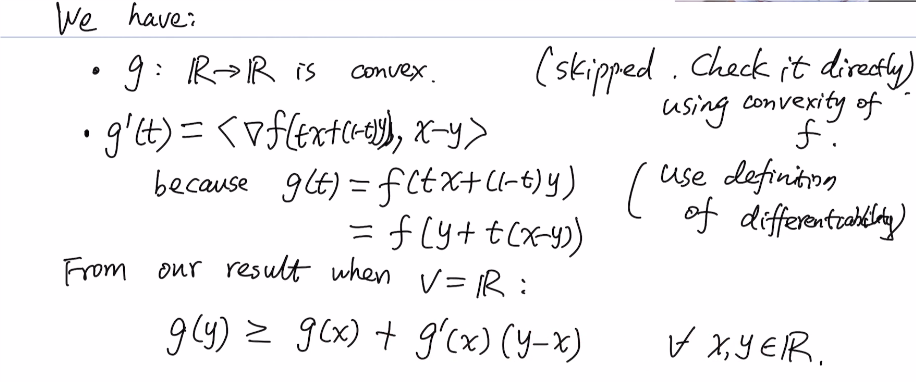 We have:
• g: ℝ→ℝ is convex. (skipped. Check it directly)
using convexity of
f.
• g'(t) = <∇f(tx+(1-t)y), x-y>
because g(t) = f(tx+(1-t)y) (use definition
= f(y+t(x-y)) of differentiability)
From our result when V=ℝ:
g(y) ≥ g(x) + g'(x)(y-x) ∀ x,y∈ℝ.